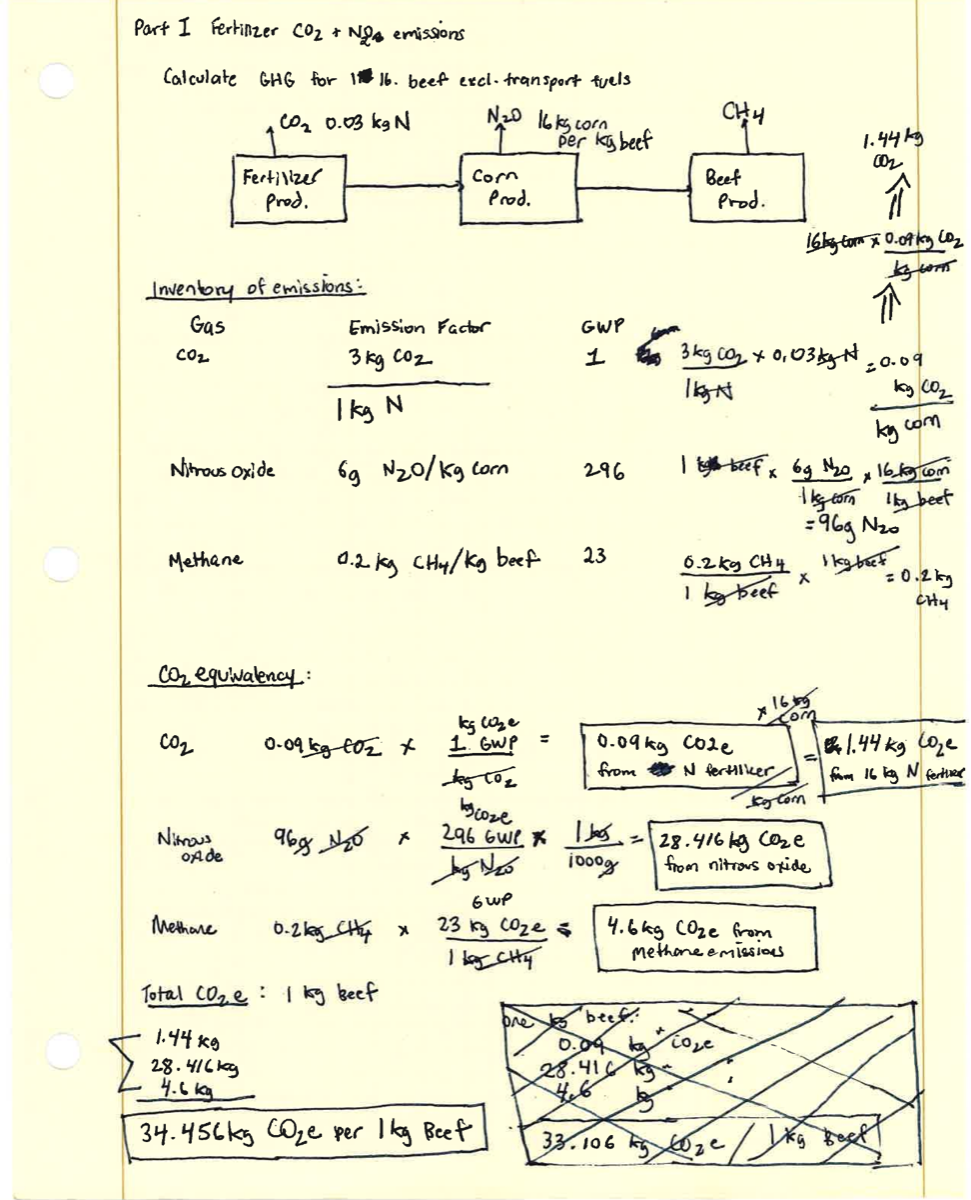 Part I Fertilizer CO2 + N2O emissions
Calculate GHG for 1 lb. beef excl. transport fuels
CO2 0.03 kg N
N2O 16 kg corn per kg beef
CH4
Fertilizer Prod.
Corn Prod.
Beef Prod.
1.44 kg CO2
16 kg corn x 0.09 kg CO2
kg corn
Inventory of emissions:
Gas Emission Factor GWP
CO2 3 kg CO2 1 3 kg CO2 x 0.03 kg N = 0.09
1 kg N 1 kg N kg CO2
kg corn
Nitrous oxide 6g N2O/kg corn 296 1 kg beef x 6g N2O x 16 kg corn
1 kg corn 1 kg beef
= 96g N2O
Methane 0.2 kg CH4/kg beef 23 0.2 kg CH4 x 1 kg beef = 0.2 kg
1 kg beef CH4
CO2 equivalency:
kg CO2e x 16 kg corn
CO2 0.09 kg CO2 x 1 GWP = 0.09 kg CO2e = 1.44 kg CO2e
kg CO2 from N fertiliker from 16 kg N fertilizer
kg corn
kg CO2e
Nitrous oxide 96g N2O x 296 GWP x 1 kg = 28.416 kg CO2e
kg N2O 1000g from nitrous oxide
GWP
Methane 0.2 kg CH4 x 23 kg CO2e = 4.6 kg CO2e from
1 kg CH4 methane emissions
Total CO2e: 1 kg beef
1.44 kg
28.416 kg
4.6 kg
34.456 kg CO2e per 1 kg Beef
one kg beef:
0.09 kg CO2e
28.416 kg "
4.6 kg "
33.106 kg CO2e / 1 kg Beef